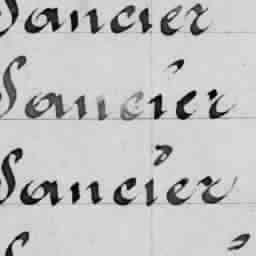 Sancier
Sancier
Sancier